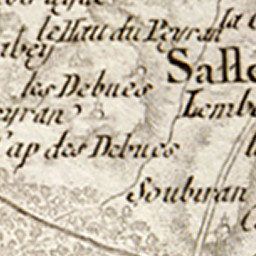 le Hau du Peyran la
abey
Salle
les Debués
Lemb
eyran
Cap des Debués
Soubiran